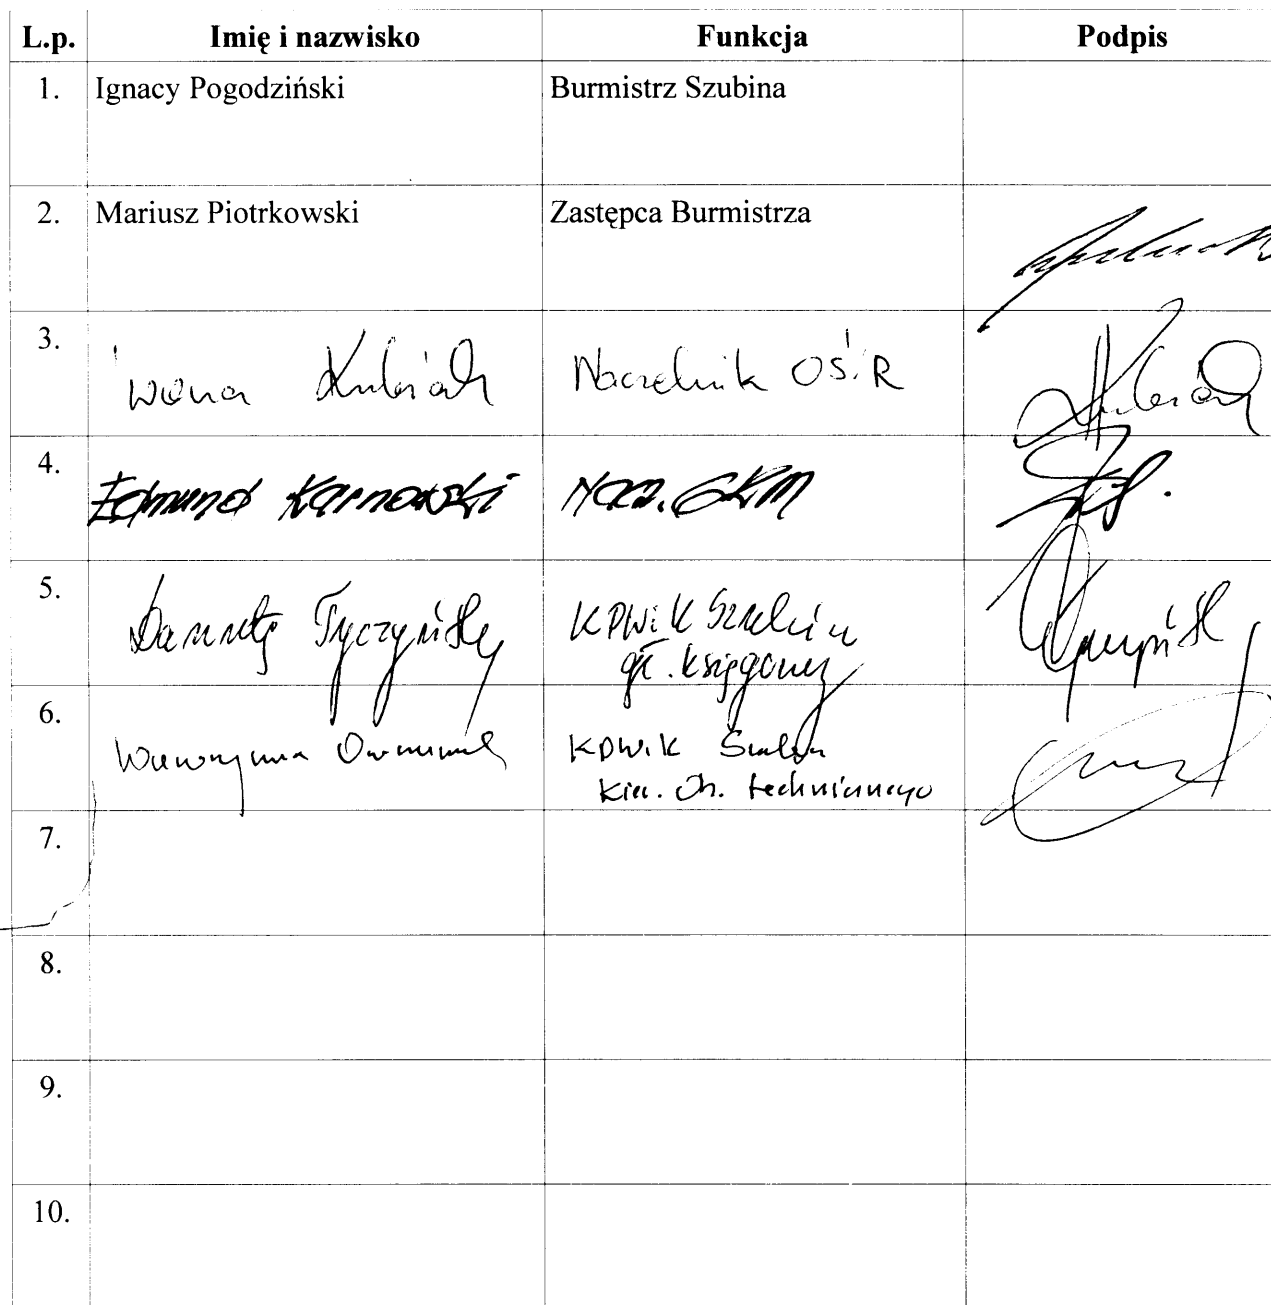 L.p. Imię i nazwisko Funkcja Podpis
1. Ignacy Pogodziński Burmistrz Szubina
2. Mariusz Piotrkowski Zastępca Burmistrza
3. Iwona Kubiak Naczelnik OŚiR
4. Edmund Karnowski Nacz. GKM
5. Danuta Tyczyńska KPWiK Szubin
gł. księgowy
6. Wawrzyniec KPWiK Szubin
Kier. Dz. technicznego
7.
8.
9.
10.